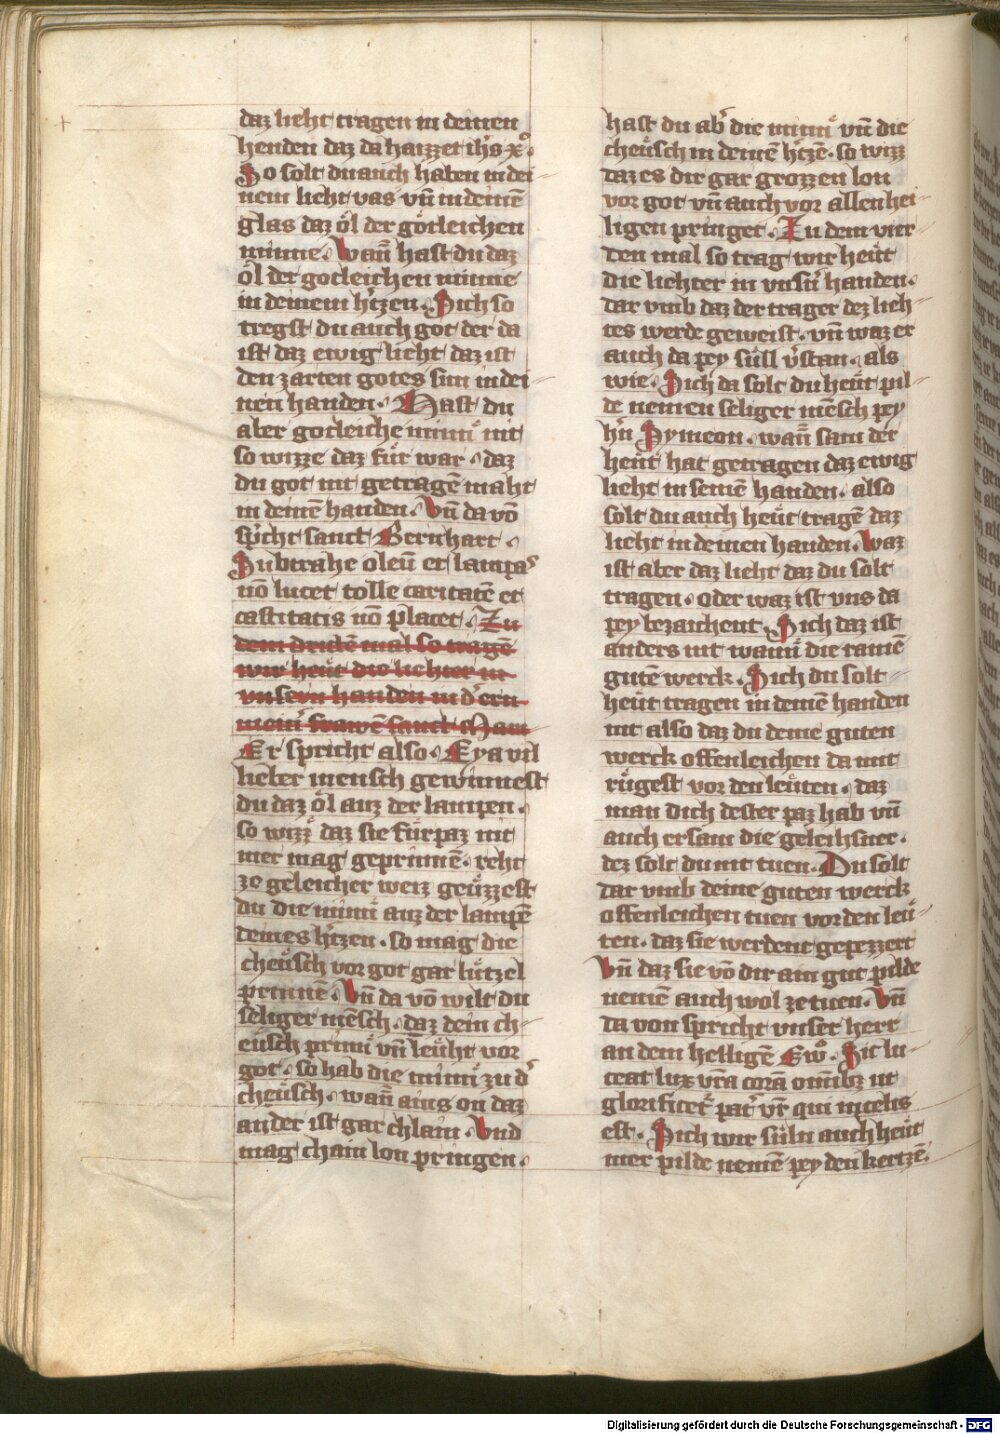 daz lieht tragen in deinen
henden daz da haizzet ihs xo.
So solt du auch haben in dei
nem lieht vas vn̄ in deinē
glas daz öl der götleichen
minne. Wan̄ hast du daz
öl der gotleichen minne
in deinem h'tzen. Sich so
tregst du auch got der da
ist daz ewig lieht daz ist
den zarten gotes sun in dei
nen handen. Hast du
aber gotleiche minn̄ nit
so wizze daz für war. daz
du got nit getragē maht
in deinē handen. Vn̄ da vō
sp'icht sanct Bernhart.
Subtrahe oleū et lampas
nō lucet tolle caritatē et
castitatis nō placet. Zu
dem drittē mal so tragē
wir heüt die liechter in
vnsern handen in d' ern
meinr̄ frawē sanct Mari
Er spricht also. Eya vil
lieber mensch gewinnest
du daz öl auz der lampen.
so wizz̄ daz sie fürpaz nit
mer mag geprinnē. reht
ze geleicher weiz geüzzest
du die minn̄ auz der lampē
deines h'tzen. so mag die
cheüsch vor got gar lützel
prinnē. Vn̄ da vō wilt du
seliger mēsch. daz dein ch
eüsch prinn̄ vn̄ leüht vor
got. so hab die minn̄ zu d'
cheüsch. wan̄ ains on daz
ander ist gar chlain. Vnd
mag chain lon pringen.
hast du ab' die minn̄ vn̄ die
cheüsch in deinē h'tzē. so wizz
daz es dir gar grozzen lon
vor got vn̄ auch vor allen hei
ligen pringet. Zu dem vier
den mal so trag wir heüt
die liehter in vnsn̄ handen.
dar vmb daz der trager dez lieh
tes werde geweist. vn̄ waz er
auch da pey süll v'stan. als
wie. Sich da solt du heüt pil
de nemen seliger mēsch pey
h'n Symeon. wan̄ sam der
heüt hat getragen daz ewig
lieht in seinē handen. also
solt du auch heüt tragē daz
licht in deinen handen. Waz
ist aber daz lieht daz du solt
tragen. oder waz ist vns da
pey bezaichent. Sich daz ist
anders nit wann̄ die rainē
gutē werck. Sich du solt
heüt tragen in deinē handen
nit also daz du deine guten
werck offenleichen da mit
rügest vor den leüten. daz
man dich dester paz hab vn̄
auch ersam die geleihsner.
dez solt du nit tuen. Du solt
dar vmb deine guten werck
offenleichen tuen vor den leü
ten. daz sie werdent gepezzert
Vn̄ daz sie vō dir ain gut pilde
nemē auch wol ze tuen. Vn̄
da von spricht vnser herr
an dem heiligē Ewo. Sic lu
ceat lux vr̄a corā om̄ibz ut
glorificet' pat' vr̄ qui in celis
est. Sich wir süln auch heüt
mer pilde nemē pey den kertzē.
Digitalisierung gefördert durch die Deutsche Forschungsgemeinschaft - DFG